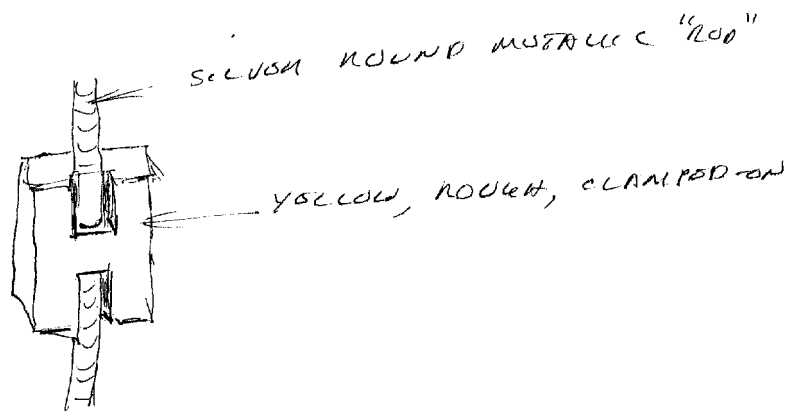 SILVER ROUND METALLIC "ROD"
YELLOW, ROUGH, CLAMPED-ON